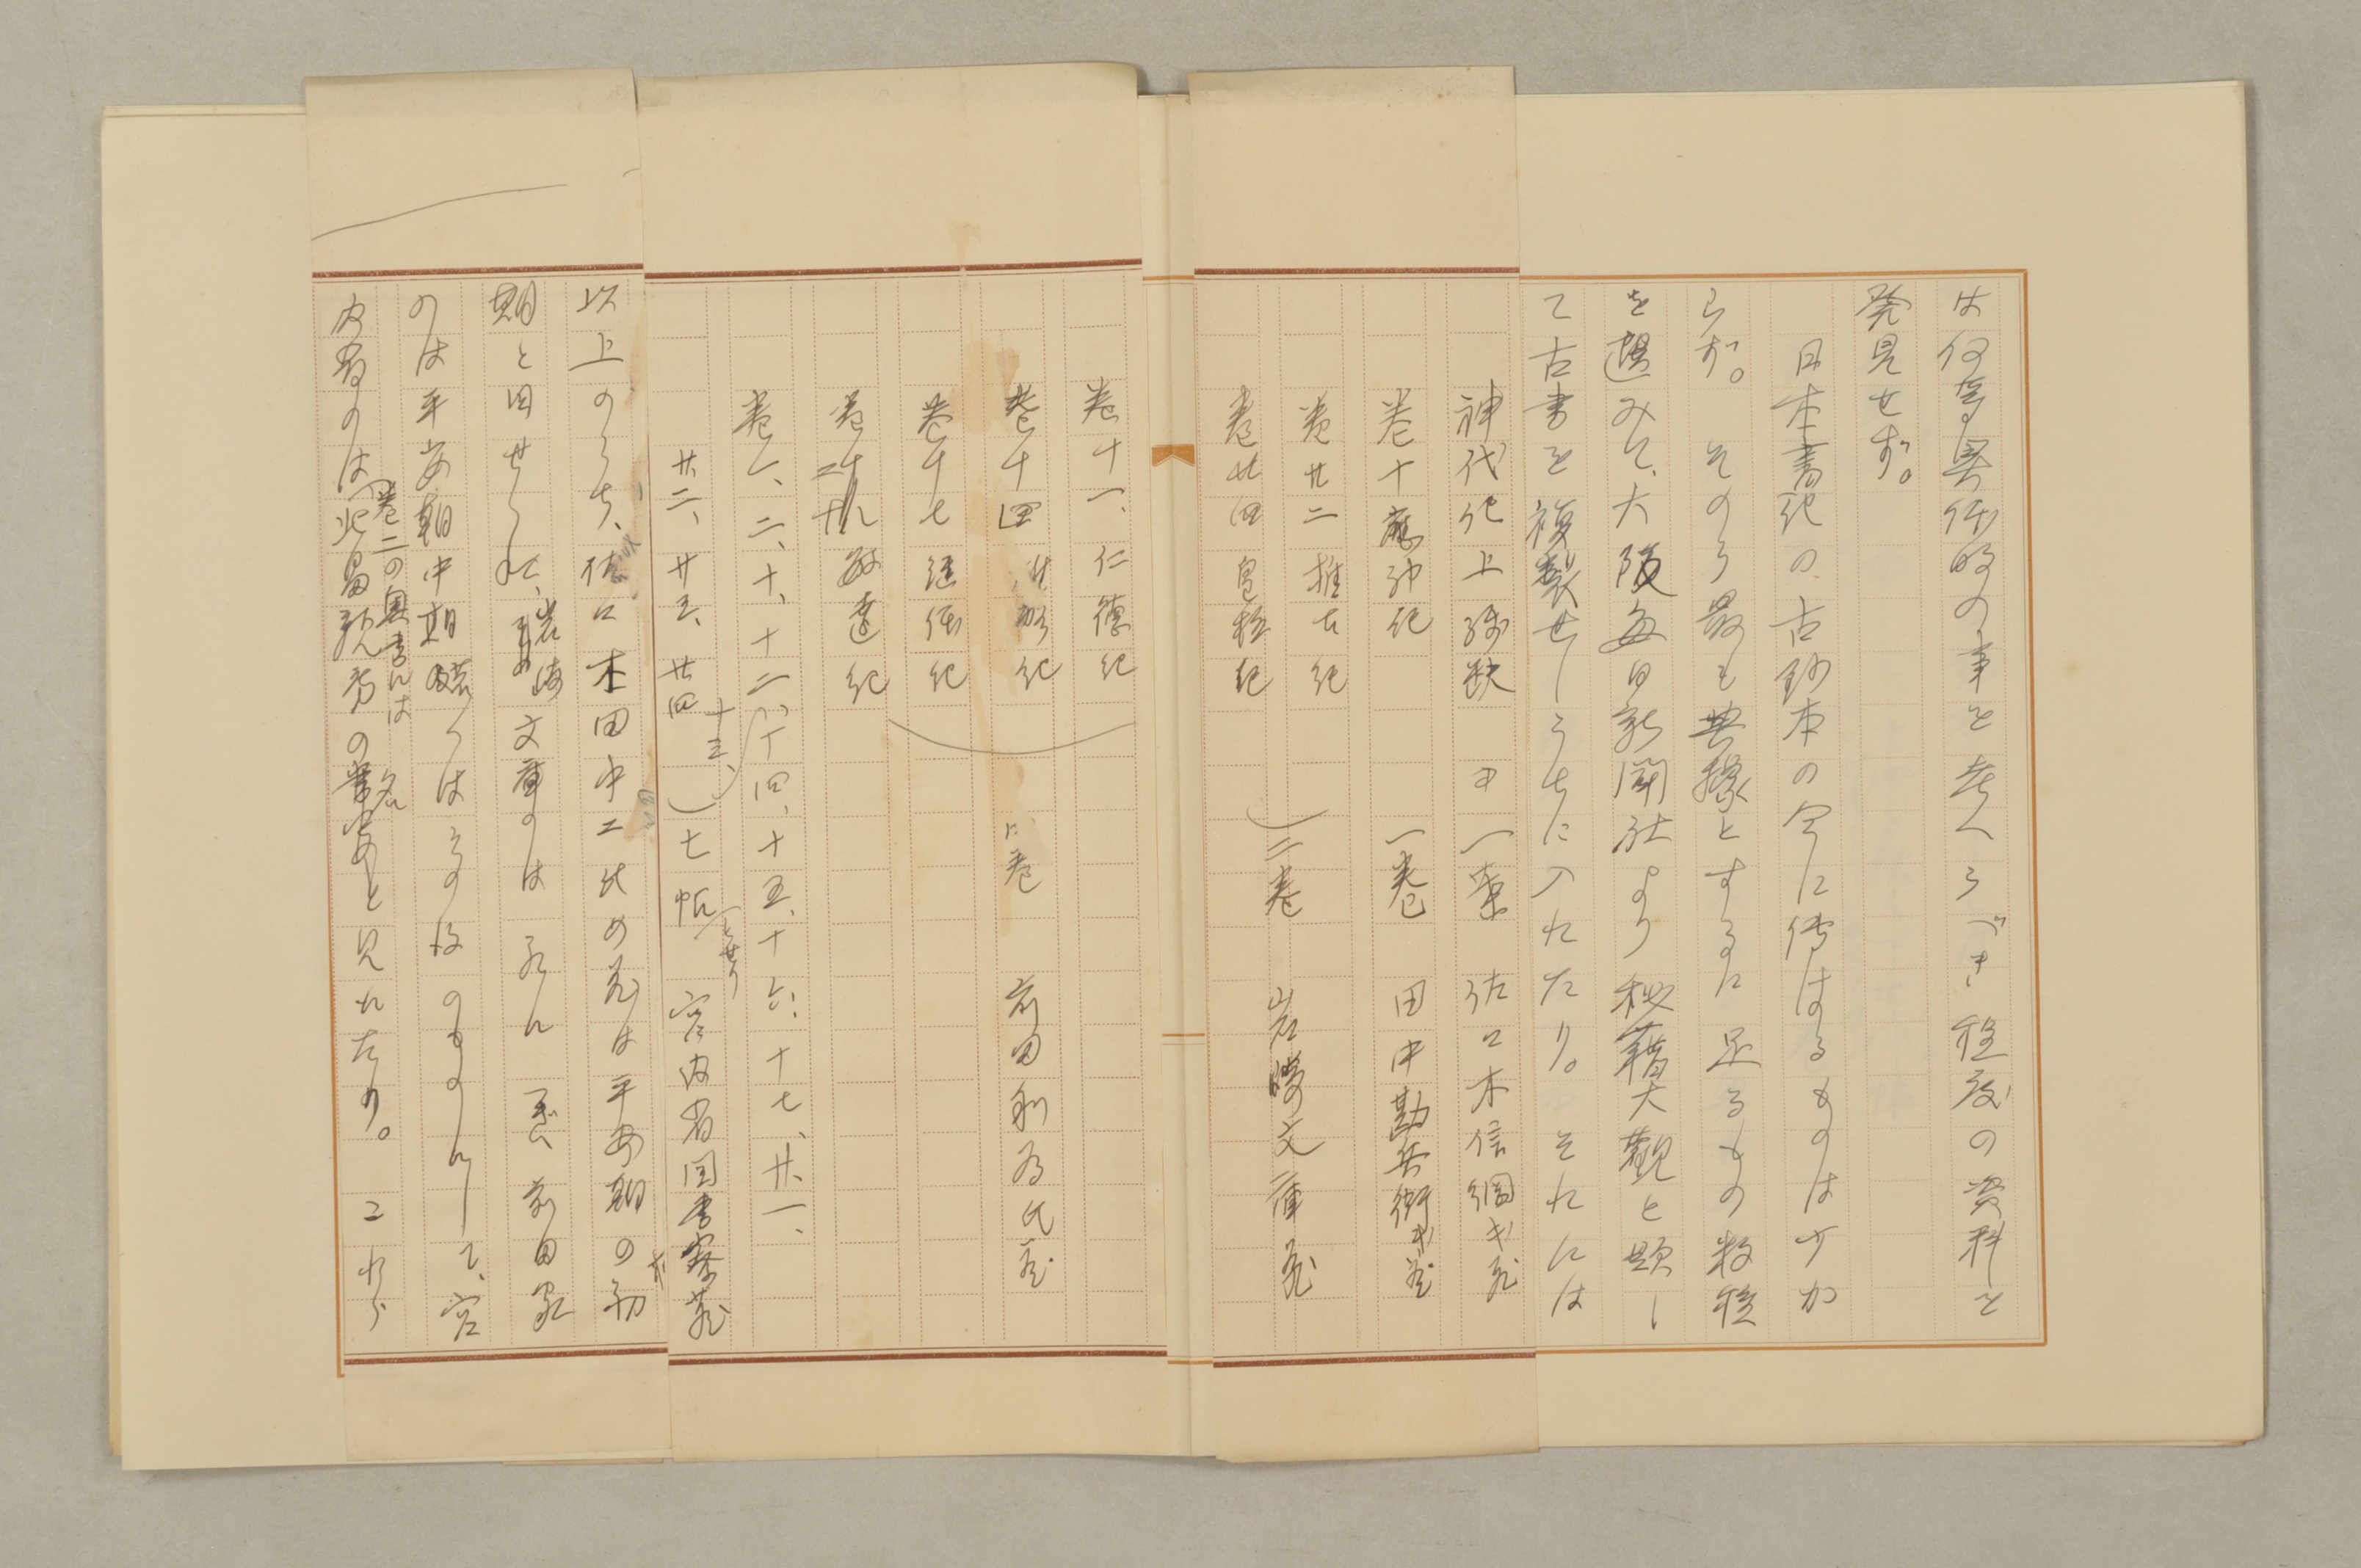 は何等具体的の事を考へうべき程度の資料を
発見せず。
日本書紀の古鈔本の今に傳はるものは少か
らず。そのうち最も典據とするに足るもの数種
を選みて、大阪毎日新聞社より秘籍大觀と題し
て古書を複製せしうちに入れたり。それには
神代紀上残缺 一葉 佐々木信綱氏蔵
巻十 應神紀 一巻 田中勘兵衛氏蔵
巻廿二 推古紀
巻廿四 皇極紀 二巻 岩崎文庫蔵
巻十一、仁德紀
巻十四 雄略紀 四巻 前田利為氏蔵
巻十七 継体紀
巻二十 敏達紀
巻一、二、十、十二、十三、十四、十五、十六、十七、廿一、
廿二、廿三、廿四 七帖 宮内省図書寮蔵
以上のうち、佐々木田中二氏の蔵は平安朝の初
期と目せられ、岩崎文庫のは
前田家
のは平安朝中期若くはその後のものにして、宮
内省のは巻二の奥書には北畠親房の
と見れたり。これら